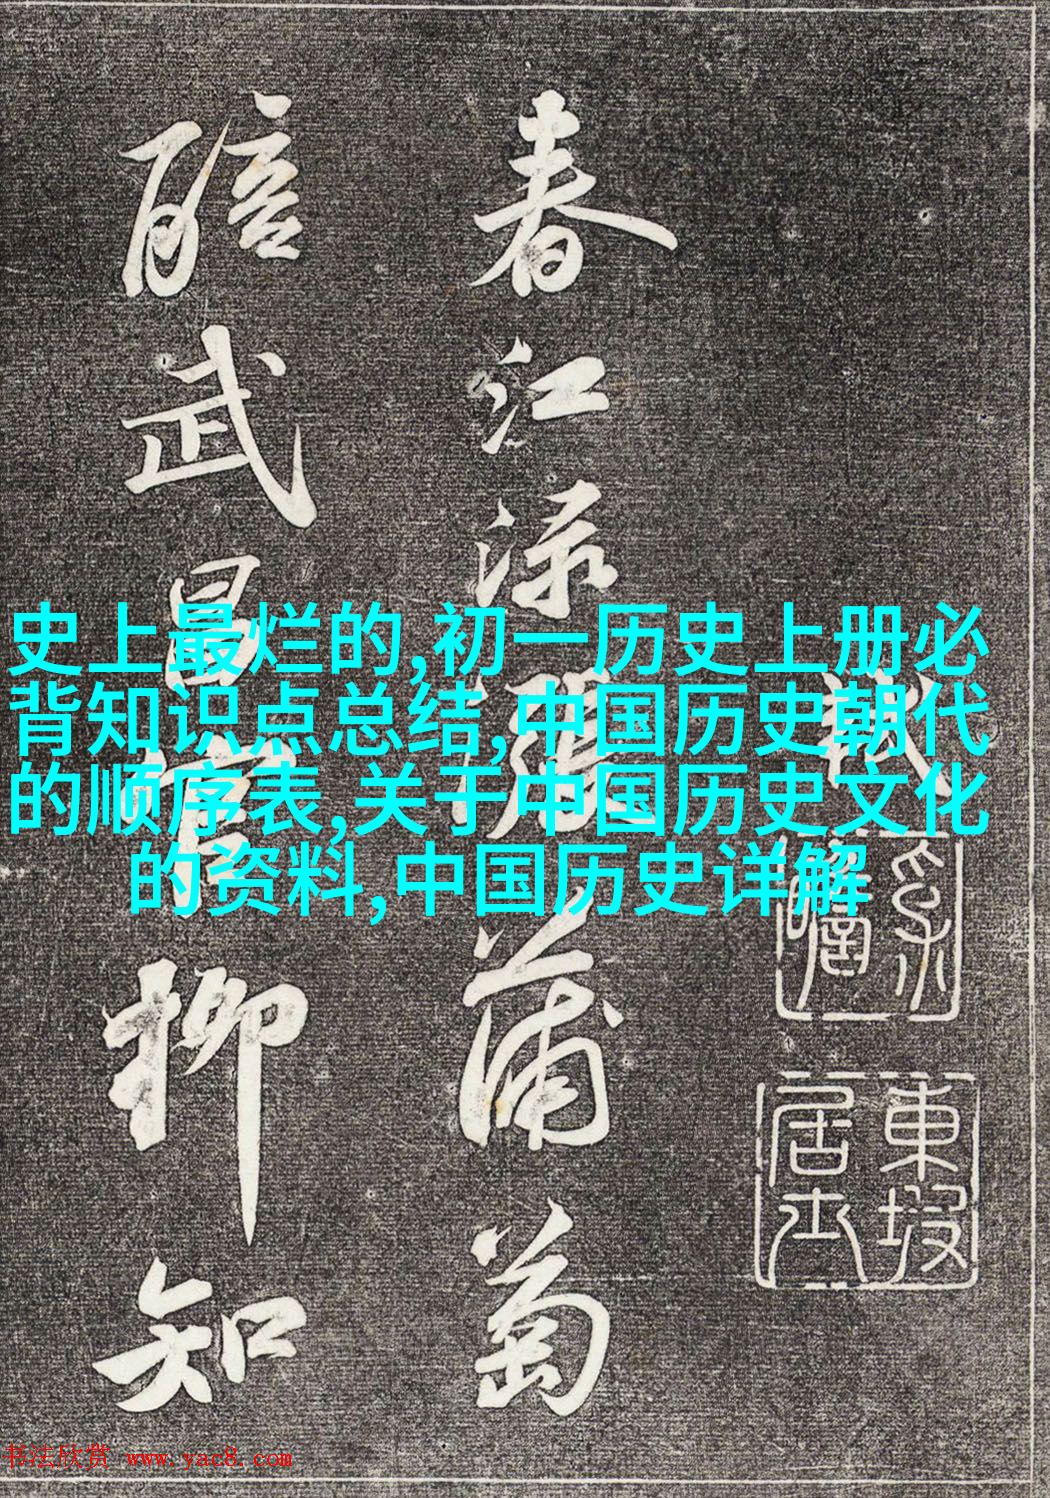 史上最烂的,初一历史上册必
背知识点总结,中国历史朝代
的顺序表,关于中国历史文化
的资料,中国历史详解
東坡居士
春江淥漲蒲萄
醅武昌官柳知
书法欣赏 www.yac8.com